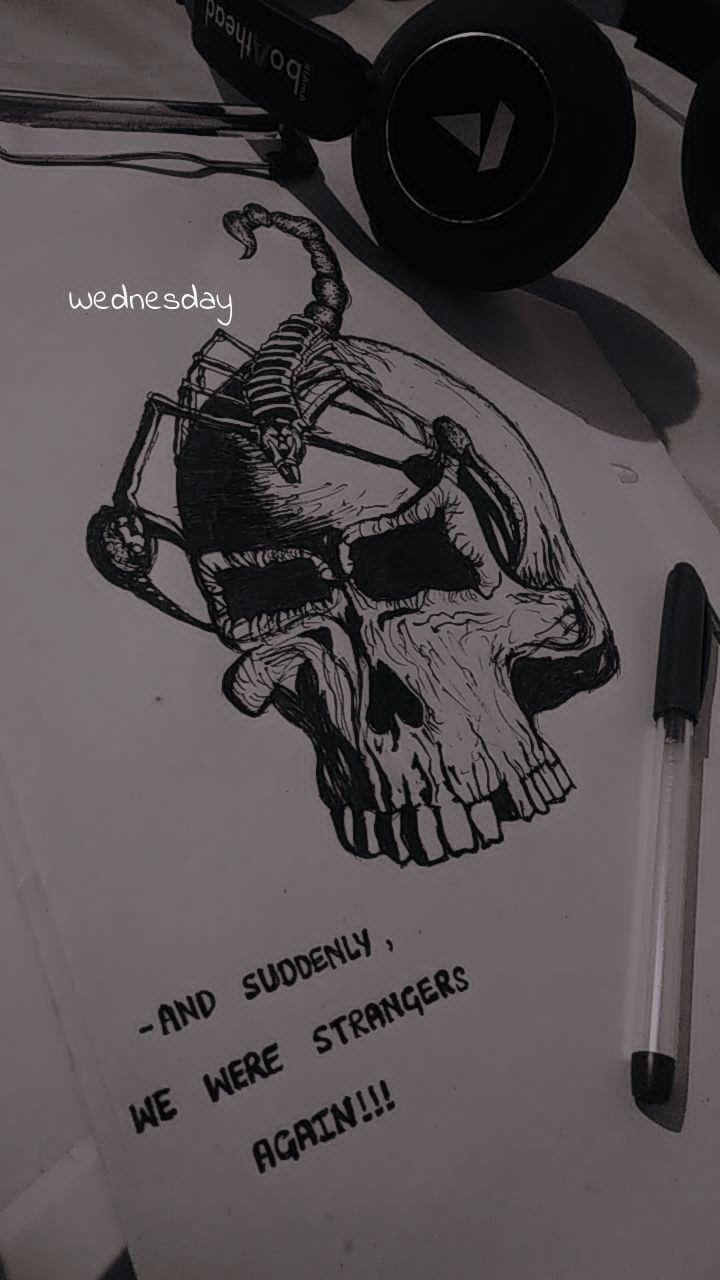 boAthead
wednesday
-AND SUDDENLY,
WE WERE STRANGERS
AGAIN!!!